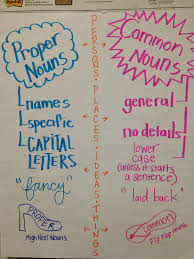 Post-it
Proper
Nouns
names
specific
CAPITAL
LETTERS
"fancy"
PROPER
High Heel Nouns
PERSONS, PLACES, IDEAS, THINGS
Common
Nouns
general
no details
lower
case
(unless it starts
a sentence)
"laid back"
Common
Flip Flop nouns